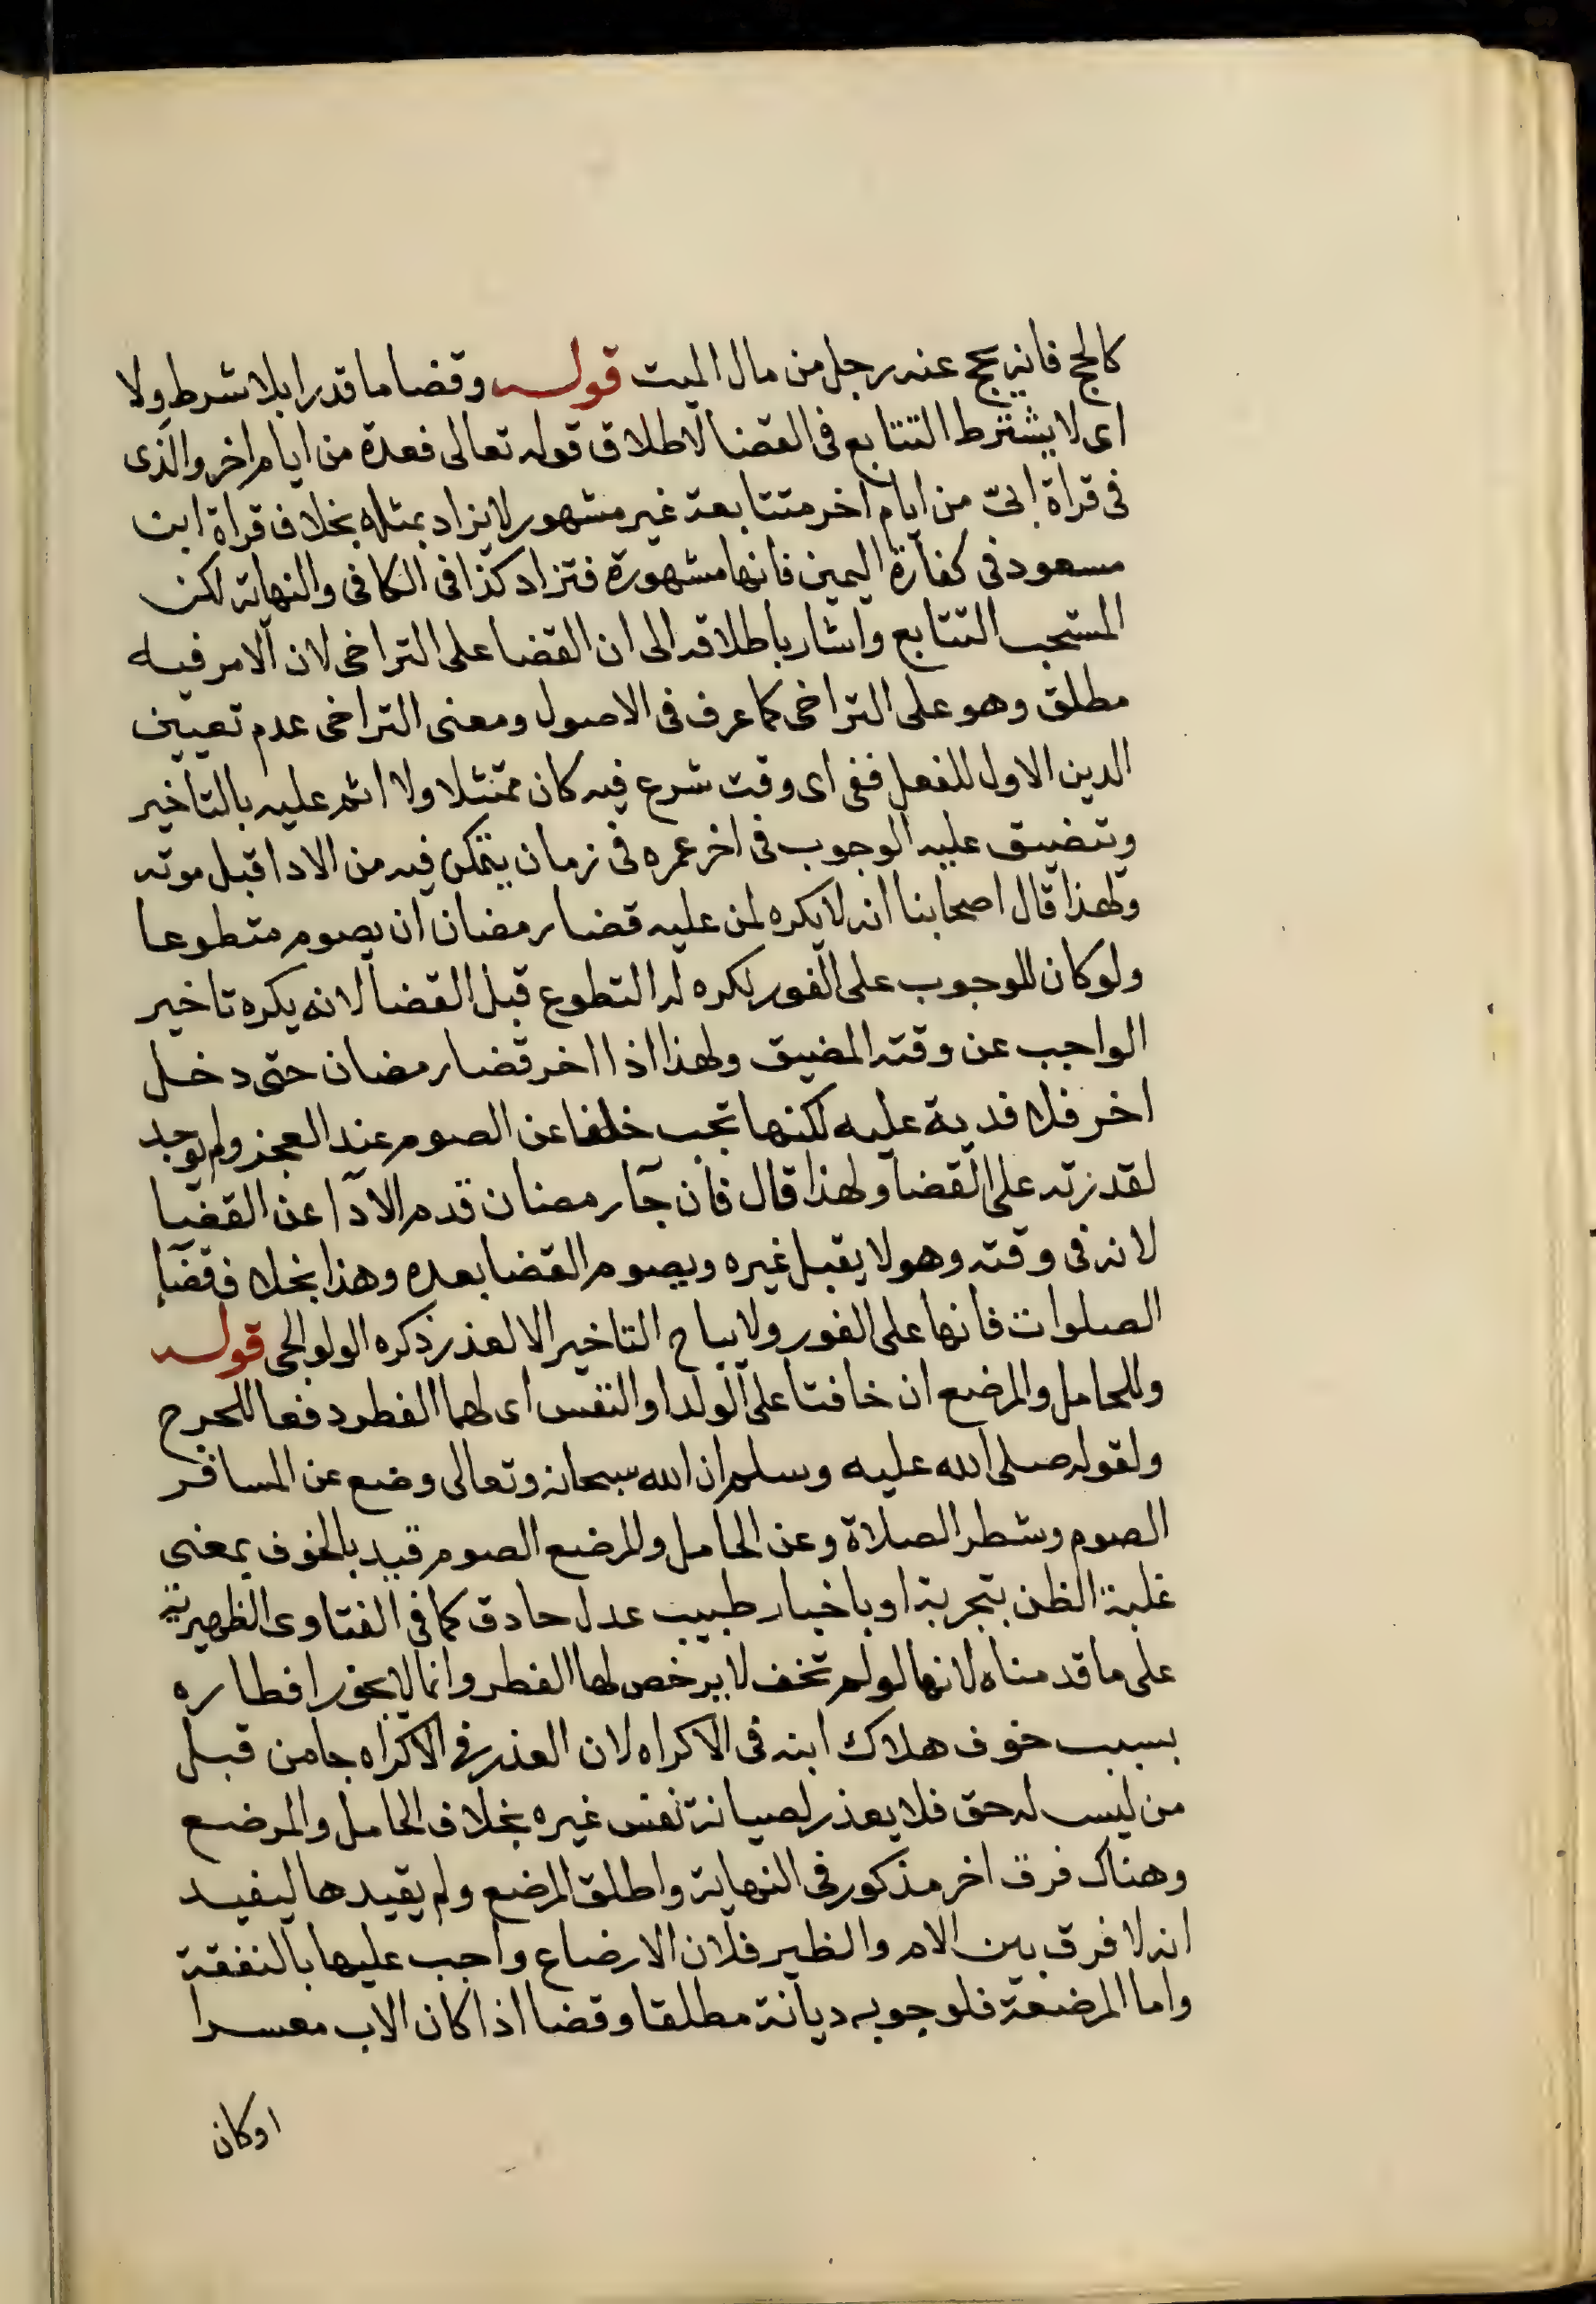 كالحج فانه يحج عنه رجل من مال الميت قوله وقضا ما قدرا بلا شرط ولا
اى لا يشترط التتابع فى القضا لاطلاق قوله تعالى فعدة من ايام اخر والذى
فى قراة ابىّ من ايام اخر متتابعة غير مشهور لا يزاد بمثله بخلاف قراة ابن
مسعود فى كفارة اليمين فانها مشهورة فتزاد كذا فى الكافى والنهاية لكن
المستحب التتابع واشار باطلاقه الى ان القضا على التراخى لان الامر فيه
مطلق وهو على التراخى كما عرف فى الاصول ومعنى التراخى عدم تعيين
الدين الاول للفعل ففى اى وقت شرع فيه كان ممتثلا ولا اثم عليه بالتاخير
وتتضيق عليه الوجوب فى اخر عمره فى زمان يتمكن فيه من الادا قبل موته
ولهذا قال اصحابنا انه لا يكره لمن عليه قضا رمضان ان يصوم متطوعا
ولو كان للوجوب على الفور لكره له التطوع قبل القضا لانه يكره تاخير
الواجب عن وقته المضيق ولهذا اذا اخر قضا رمضان حتى دخل
اخر فلا فدية عليه لكنها تجب خلفا عن الصوم عند العجز ولم يوجد
لقدرته على القضا ولهذا قال فان جآ رمضان قدم الادآ عن القضا
لانه فى وقته وهو لا يقبل غيره ويصوم القضا بعده وهذا بخلاف قضآ
الصلوات فانها على الفور ولا يباح التاخير الا لعذر ذكره الولوالجى قوله
وللحامل والمرضع ان خافتا على الولد او النفس اى لهما الفطر دفعا للحرج
ولقوله صلى الله عليه وسلم ان الله سبحانه وتعالى وضع عن المسافر
الصوم وشطر الصلاة وعن الحامل والمرضع الصوم قيد بالخوف بمعنى
غلبة الظن بتجربة او باخبار طبيب عدل حادق كما فى الفتاوى الظهيرية
على ما قدمناه لانها لو لم تخف لا يرخص لها الفطر وانما لا يجوز افطاره
بسبب خوف هلاك ابنه فى الاكراه لان العذر فى الاكراه جا من قبل
من ليس له حق فلا يعذر لصيانة نفس غيره بخلاف الحامل والمرضع
وهناك فرق اخر مذكور فى النهاية واطلق المرضع ولم يقيدها ليفيد
انه لا فرق بين الام والظير فلان الارضاع واجب عليها بالنفقة
واما المرضعة فلوجوبه ديانة مطلقا وقضا اذا كان الاب معسرا
او كان